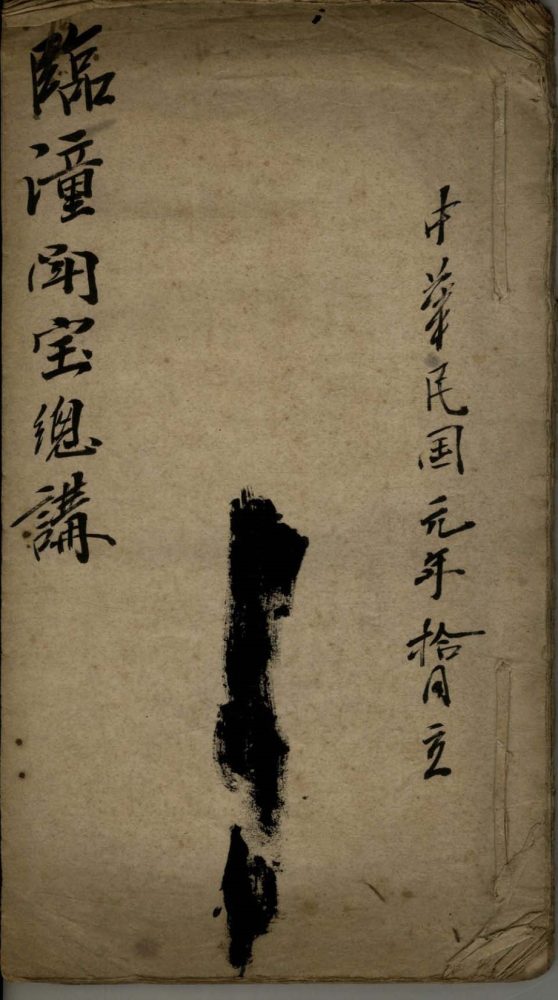 中華民国元年拾月立
臨潼闹宝總講